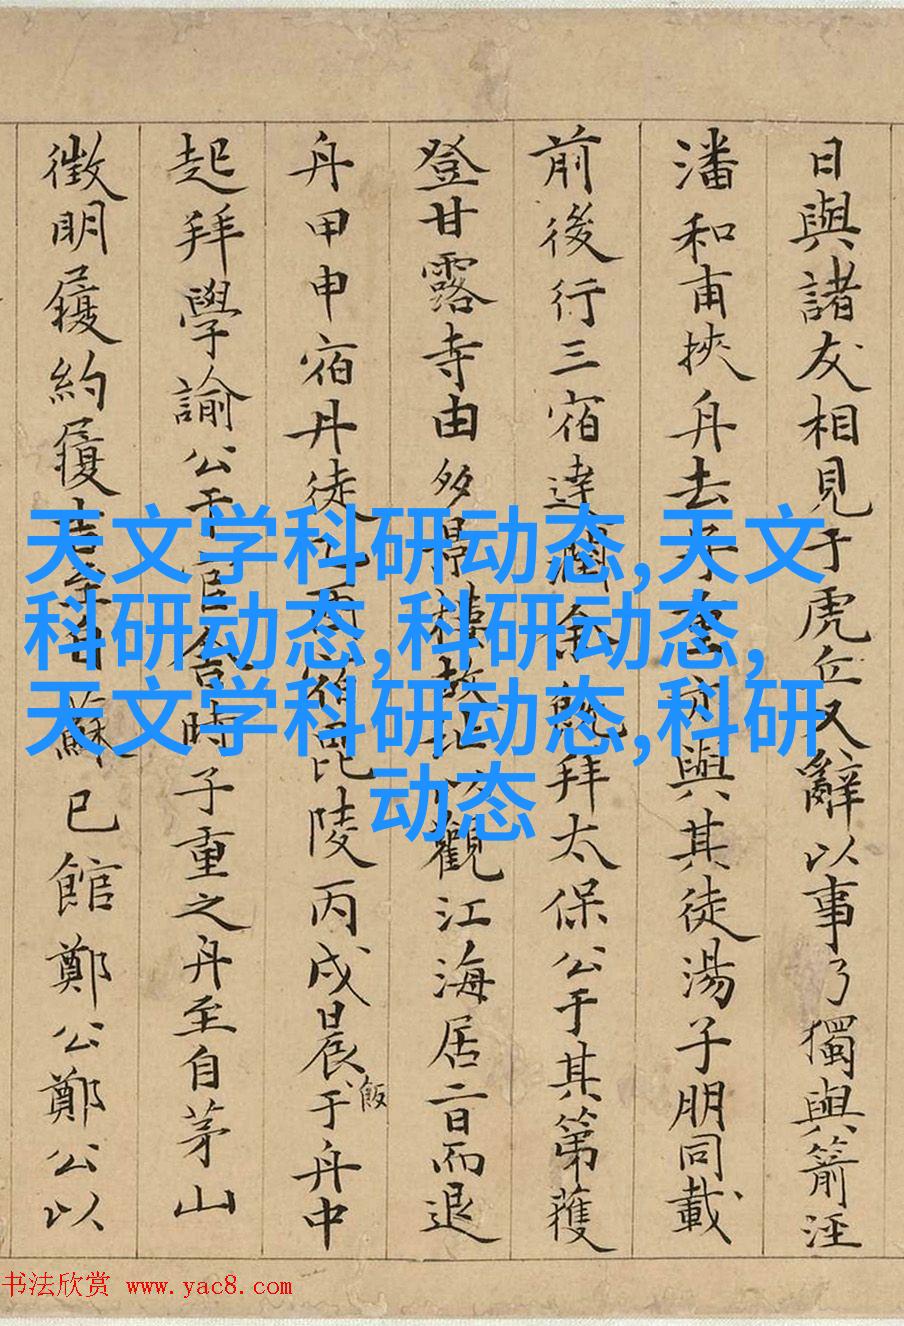 日與諸友相見于虎丘又辭以事乃獨與箭涇
潘和甫挾舟去子亦與其徒湯子朋同載
前後行三宿達潤余既拜太保公于其第獲
登甘露寺由多景樓故址以觀江海居二日而退
舟甲申宿丹徒乙酉宿毘陵丙戌晨飯于舟中
起拜學諭公于官舍時子重之舟至自茅山
徵明履約履吉蘇已館鄭公鄭公以
天文学科研动态,天文
科研动态,科研动态,
天文学科研动态,科研
动态
书法欣赏 www.yac8.com